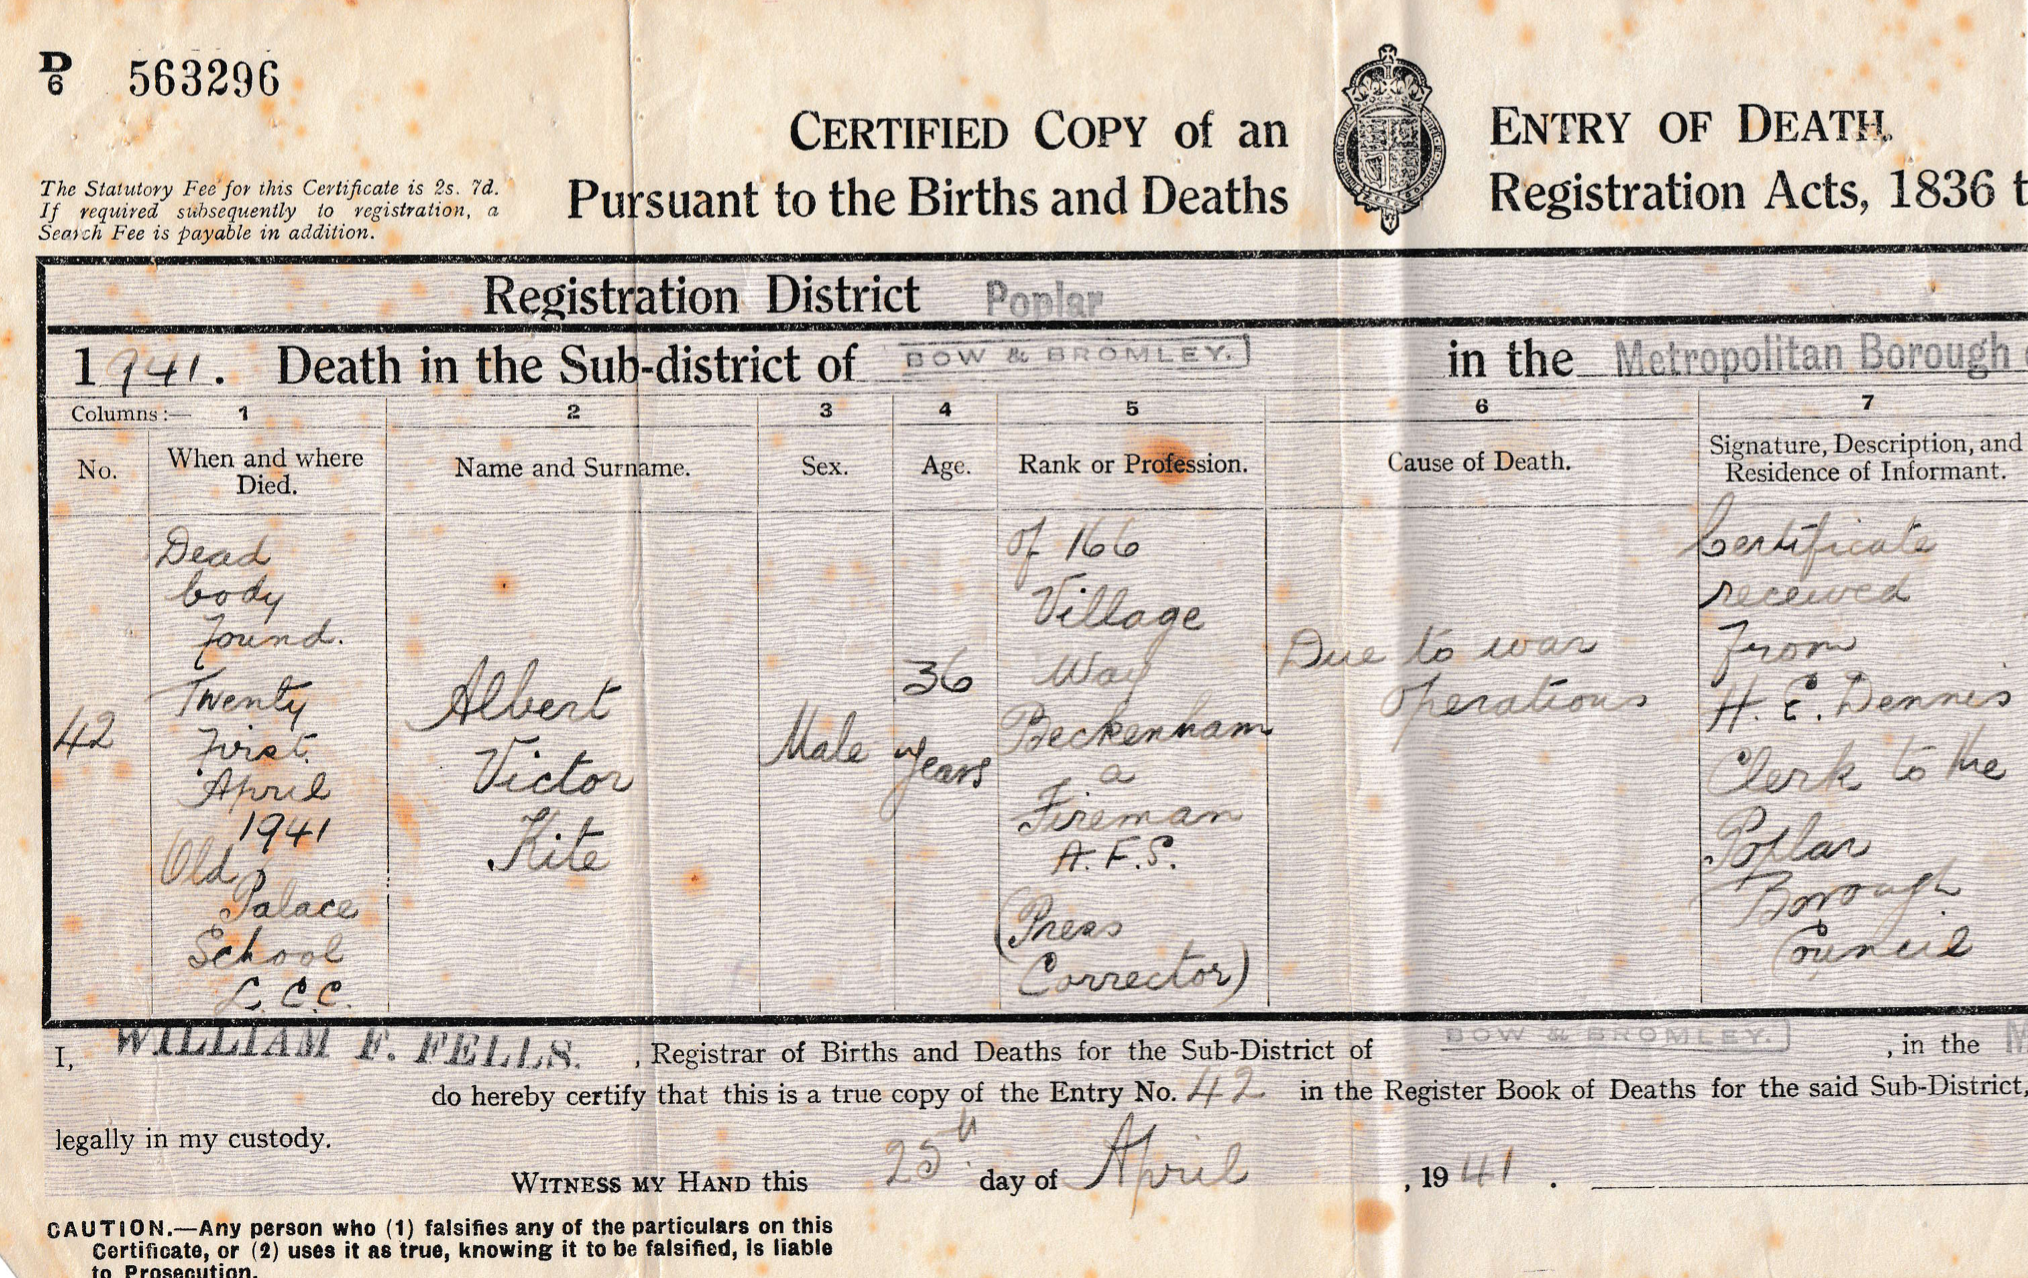 D
6 563296
CERTIFIED COPY of an ENTRY OF DEATH.
Pursuant to the Births and Deaths Registration Acts, 1836 t
The Statutory Fee for this Certificate is 2s. 7d.
If required subsequently to registration, a
Search Fee is payable in addition.
Registration District Poplar
1941. Death in the Sub-district of BOW & BROMLEY. in the Metropolitan Borough
Columns:— 1 2 3 4 5 6 7
No.
When and where
Died.
Name and Surname.
Sex.
Age.
Rank or Profession.
Cause of Death.
Signature, Description, and
Residence of Informant.
42
Dead
body
found.
Twenty
First
April
1941
Old
Palace
School
L.C.C.
Albert
Victor
Kite
Male
36
years
of 166
Village
Way
Beckenham
a
Fireman
A.F.S.
(Press
Corrector)
Due to war
operations
Certificate
received
From
H. E. Dennis
Clerk to the
Poplar
Borough
Council
I, WILLIAM F. FELLS. , Registrar of Births and Deaths for the Sub-District of BOW & BROMLEY. , in the M
do hereby certify that this is a true copy of the Entry No. 42 in the Register Book of Deaths for the said Sub-District,
legally in my custody.
WITNESS MY HAND this 25th day of April , 1941 .
CAUTION.—Any person who (1) falsifies any of the particulars on this
Certificate, or (2) uses it as true, knowing it to be falsified, is liable
to Prosecution.